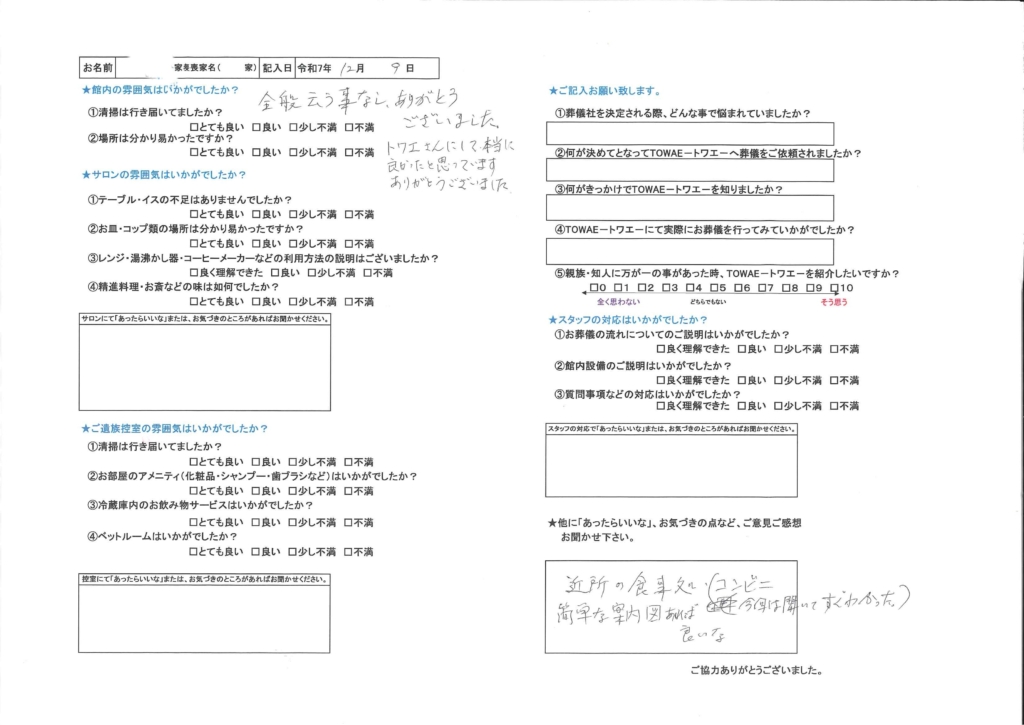 お名前 家喪喪家名( 家) 記入日 令和7年 12月 9日
★館内の雰囲気はいかがでしたか?
全般云う事なし、ありがとう
ございました。
①清掃は行き届いてましたか?
□とても良い □良い □少し不満 □不満
②場所は分かり易かったですか?
□とても良い □良い □少し不満 □不満
トワエさんにして本当に
良かったと思っています
ありがとうございました
★サロンの雰囲気はいかがでしたか?
①テーブル・イスの不足はありませんでしたか?
□とても良い □良い □少し不満 □不満
②お皿・コップ類の場所は分かり易かったですか?
□とても良い □良い □少し不満 □不満
③レンジ・湯沸かし器・コーヒーメーカーなどの利用方法の説明はございましたか?
□良く理解できた □良い □少し不満 □不満
④精進料理・お斎などの味は如何でしたか?
□とても良い □良い □少し不満 □不満
サロンにて「あったらいいな」または、お気づきのところがあればお聞かせください。
★ご遺族控室の雰囲気はいかがでしたか?
①清掃は行き届いてましたか?
□とても良い □良い □少し不満 □不満
②お部屋のアメニティ(化粧品・シャンプー・歯ブラシなど)はいかがでしたか?
□とても良い □良い □少し不満 □不満
③冷蔵庫内のお飲み物サービスはいかがでしたか?
□とても良い □良い □少し不満 □不満
④ベットルームはいかがでしたか?
□とても良い □良い □少し不満 □不満
控室にて「あったらいいな」または、お気づきのところがあればお聞かせください。
★ご記入お願い致します。
①葬儀社を決定される際、どんな事で悩まれていましたか?
②何が決めてとなってTOWAEートワエーへ葬儀をご依頼されましたか?
③何がきっかけでTOWAEートワエーを知りましたか?
④TOWAEートワエーにて実際にお葬儀を行ってみていかがでしたか?
⑤親族・知人に万が一の事があった時、TOWAEートワエーを紹介したいですか?
□0 □1 □2 □3 □4 □5 □6 □7 □8 □9 □10
全く思わない どちらでもない そう思う
★スタッフの対応はいかがでしたか?
①お葬儀の流れについてのご説明はいかがでしたか?
□良く理解できた □良い □少し不満 □不満
②館内設備のご説明はいかがでしたか?
□良く理解できた □良い □少し不満 □不満
③質問事項などの対応はいかがでしたか?
□良く理解できた □良い □少し不満 □不満
スタッフの対応で「あったらいいな」または、お気づきのところがあればお聞かせください。
★他に「あったらいいな」、お気づきの点など、ご意見ご感想
お聞かせ下さい。
近所の食事処・(コンビニ
簡単な案内図あれば 今回は聞いてすぐわかった。)
良いな
ご協力ありがとうございました。